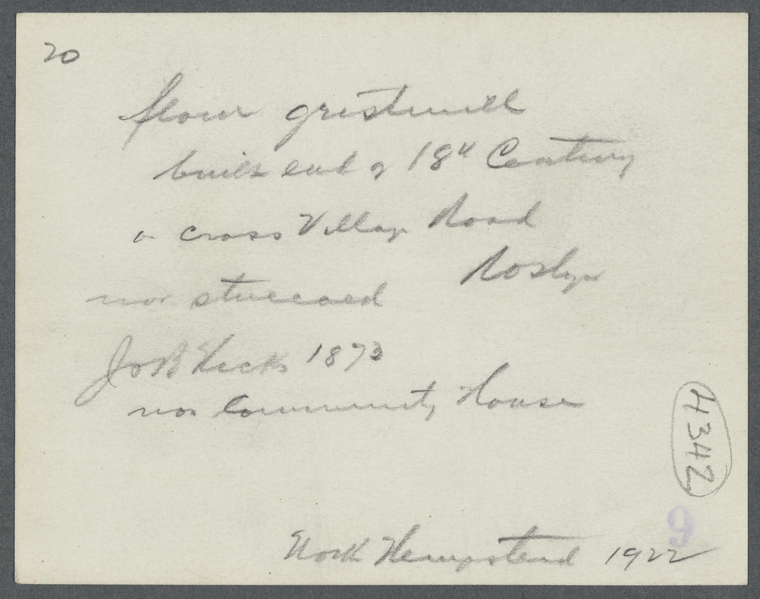 20
flour gristmill
built end of 18th Century
on cross Village Road
Roslyn
now stuccoed
Jos B Hicks 1873
now Community House
4342
9
North Hempstead 1922